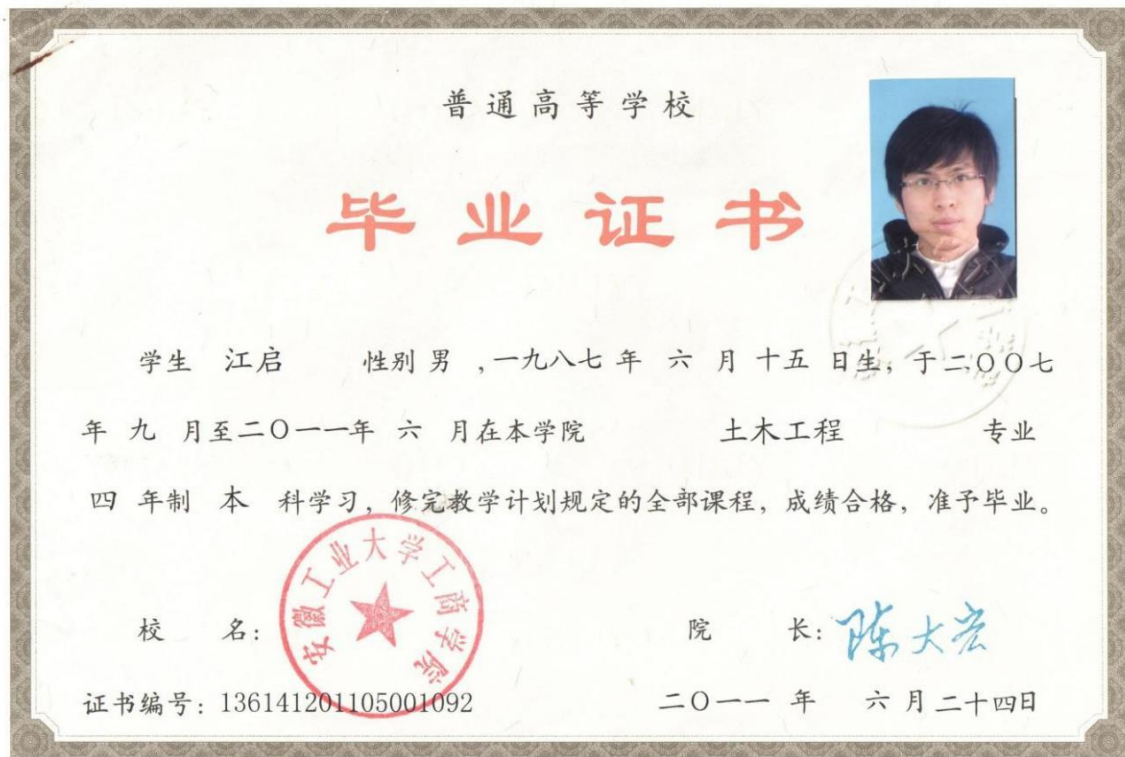 普通高等学校
毕业证书
学生 江启 性别 男 ,一九八七 年 六 月 十五 日生, 于二〇〇七
年 九 月至二〇一一年 六 月在本学院 土木工程 专业
四 年制 本 科学习, 修完教学计划规定的全部课程, 成绩合格, 准予毕业。
安徽工业大学工商学院
校 名: 院 长: 陈大宏
证书编号: 136141201105001092 二〇一一 年 六 月 二十四日